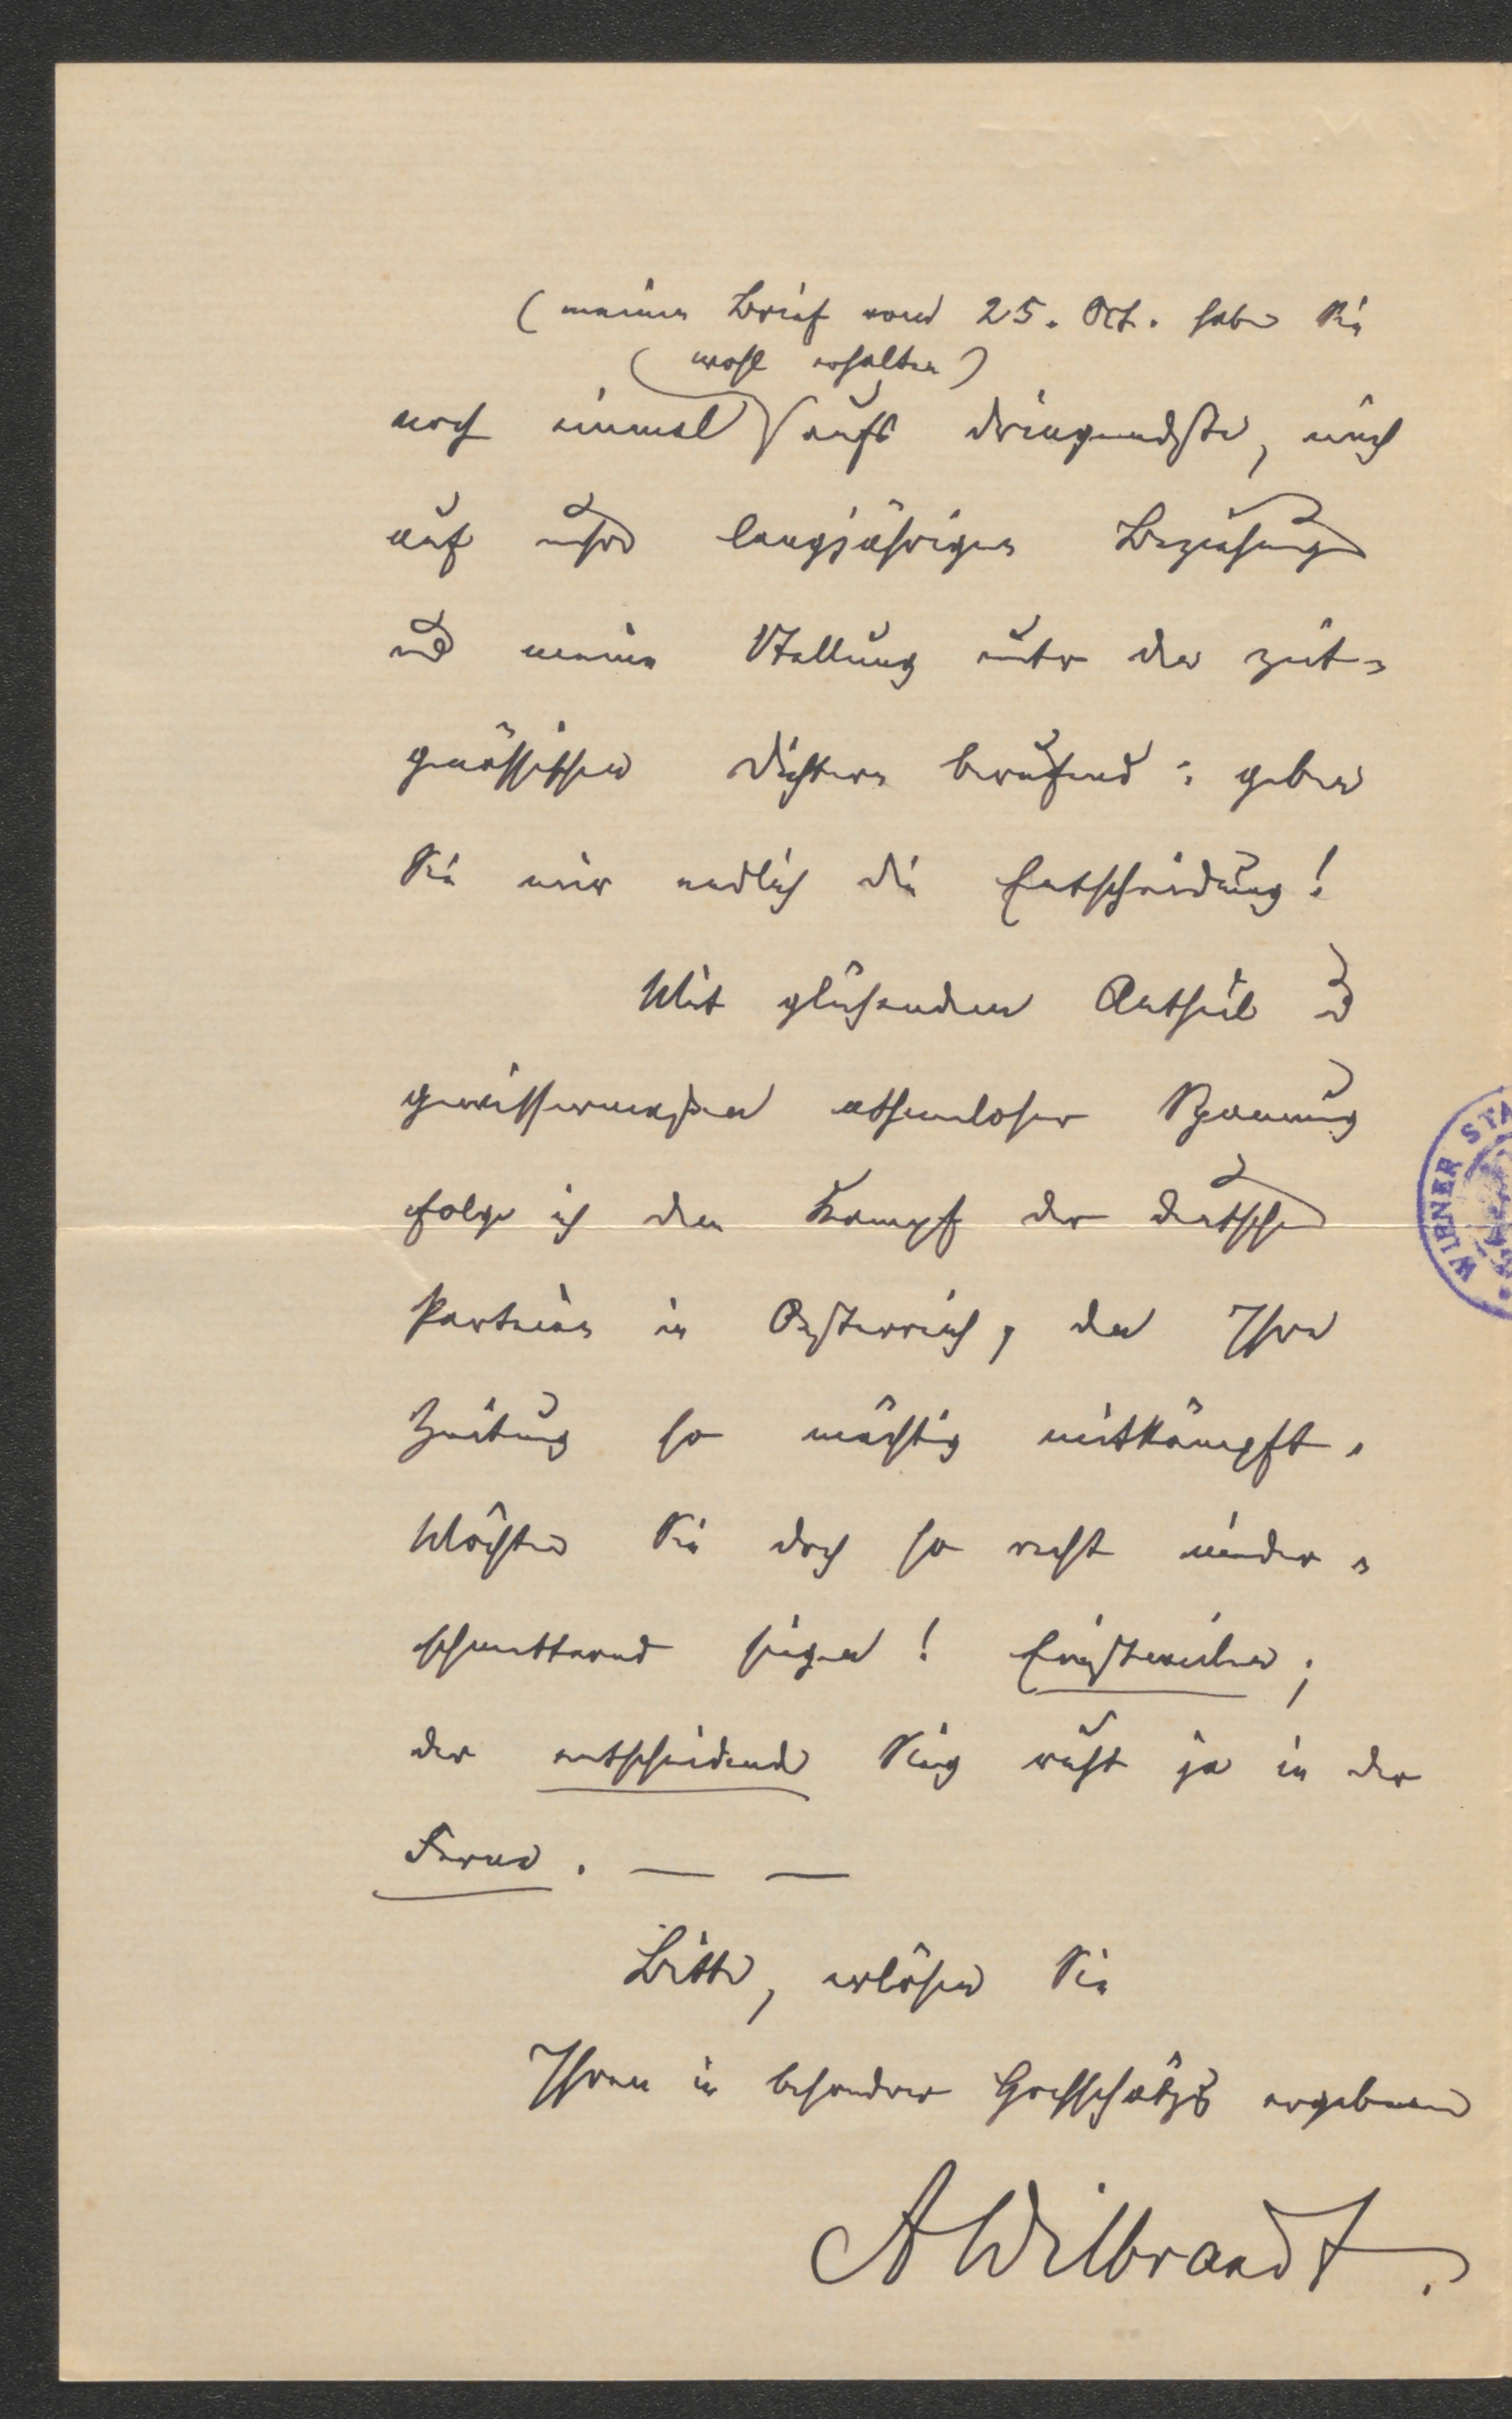 (meinen Brief vom 25. Oct. haben Sie
(wohl erhalten)
noch einmal aufs dringendste, mich
auf unsre langjährigen Beziehungen
und meine Stellung unter den zeit-
genössischen Dichtern berufend: geben
Sie mir endlich die Entscheidung!
Mit glühendem Antheil und
gewissermaßen athemloser Spannung
folge ich dem Kampf der deutschen
Parteien in Oesterreich, den Ihre
Zeitung so mächtig mitkämpft.
Möchten Sie doch so recht nieder-
schmetternd siegen! Einstweilen;
der entscheidende Sieg ruht ja in der
Ferne. — —
Bitte, erlösen Sie
Ihren in besondrer Hochschätzg ergebenen
AWilbrandt.
WIENER STA